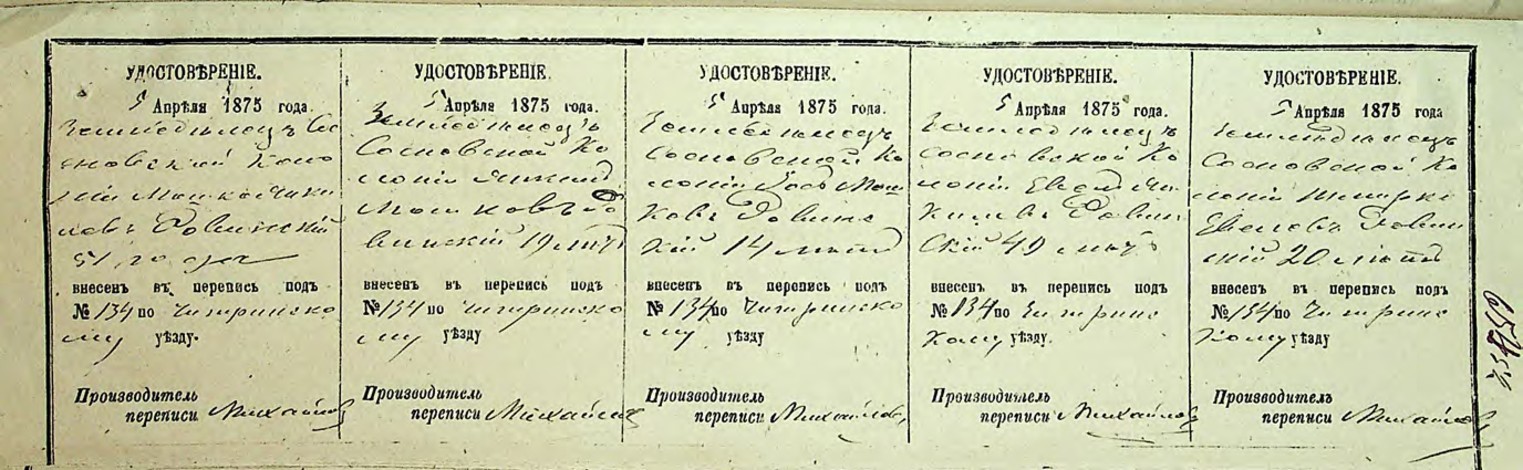 УДОСТОВѢРЕНІЕ.
5 Апрѣля 1875 года.
Землѣдѣлецъ Со
сновской Коло
ніи Мошко
Ровинскій
51 года
внесенъ въ перепись подъ
№ 134 по Чигиринско
му уѣзду.
Производитель
переписи Михайловъ
УДОСТОВѢРЕНІЕ.
5 Апрѣля 1875 года.
Землѣдѣлецъ
Сосновской Ко
лоніи
Мошковъ Ро
винскій 19 лѣтъ
внесенъ въ перепись подъ
№ 134 по Чигиринско
му уѣзду
Производитель
переписи Михайловъ
УДОСТОВѢРЕНІЕ.
5 Апрѣля 1875 года.
Землѣдѣлецъ
Сосновской Ко
лоніи Мош
ковъ Ровинс
кій 14 лѣтъ
внесенъ въ перепись подъ
№ 134 по Чигиринско
му уѣзду
Производитель
переписи Михайловъ
УДОСТОВѢРЕНІЕ.
5 Апрѣля 1875 года.
Землѣдѣлецъ
Сосновской Ко
лоніи
Ровин
скій 49 лѣтъ
внесенъ въ перепись подъ
№ 134 по Чигиринс
кому уѣзду.
Производитель
переписи Михайловъ
УДОСТОВѢРЕНІЕ.
5 Апрѣля 1875 года
Землѣдѣлецъ
Сосновской Ко
лоніи
Ровин
скій 20 лѣтъ
внесенъ въ перепись подъ
№ 134 по Чигиринс
кому уѣзду
Производитель
переписи Михайловъ